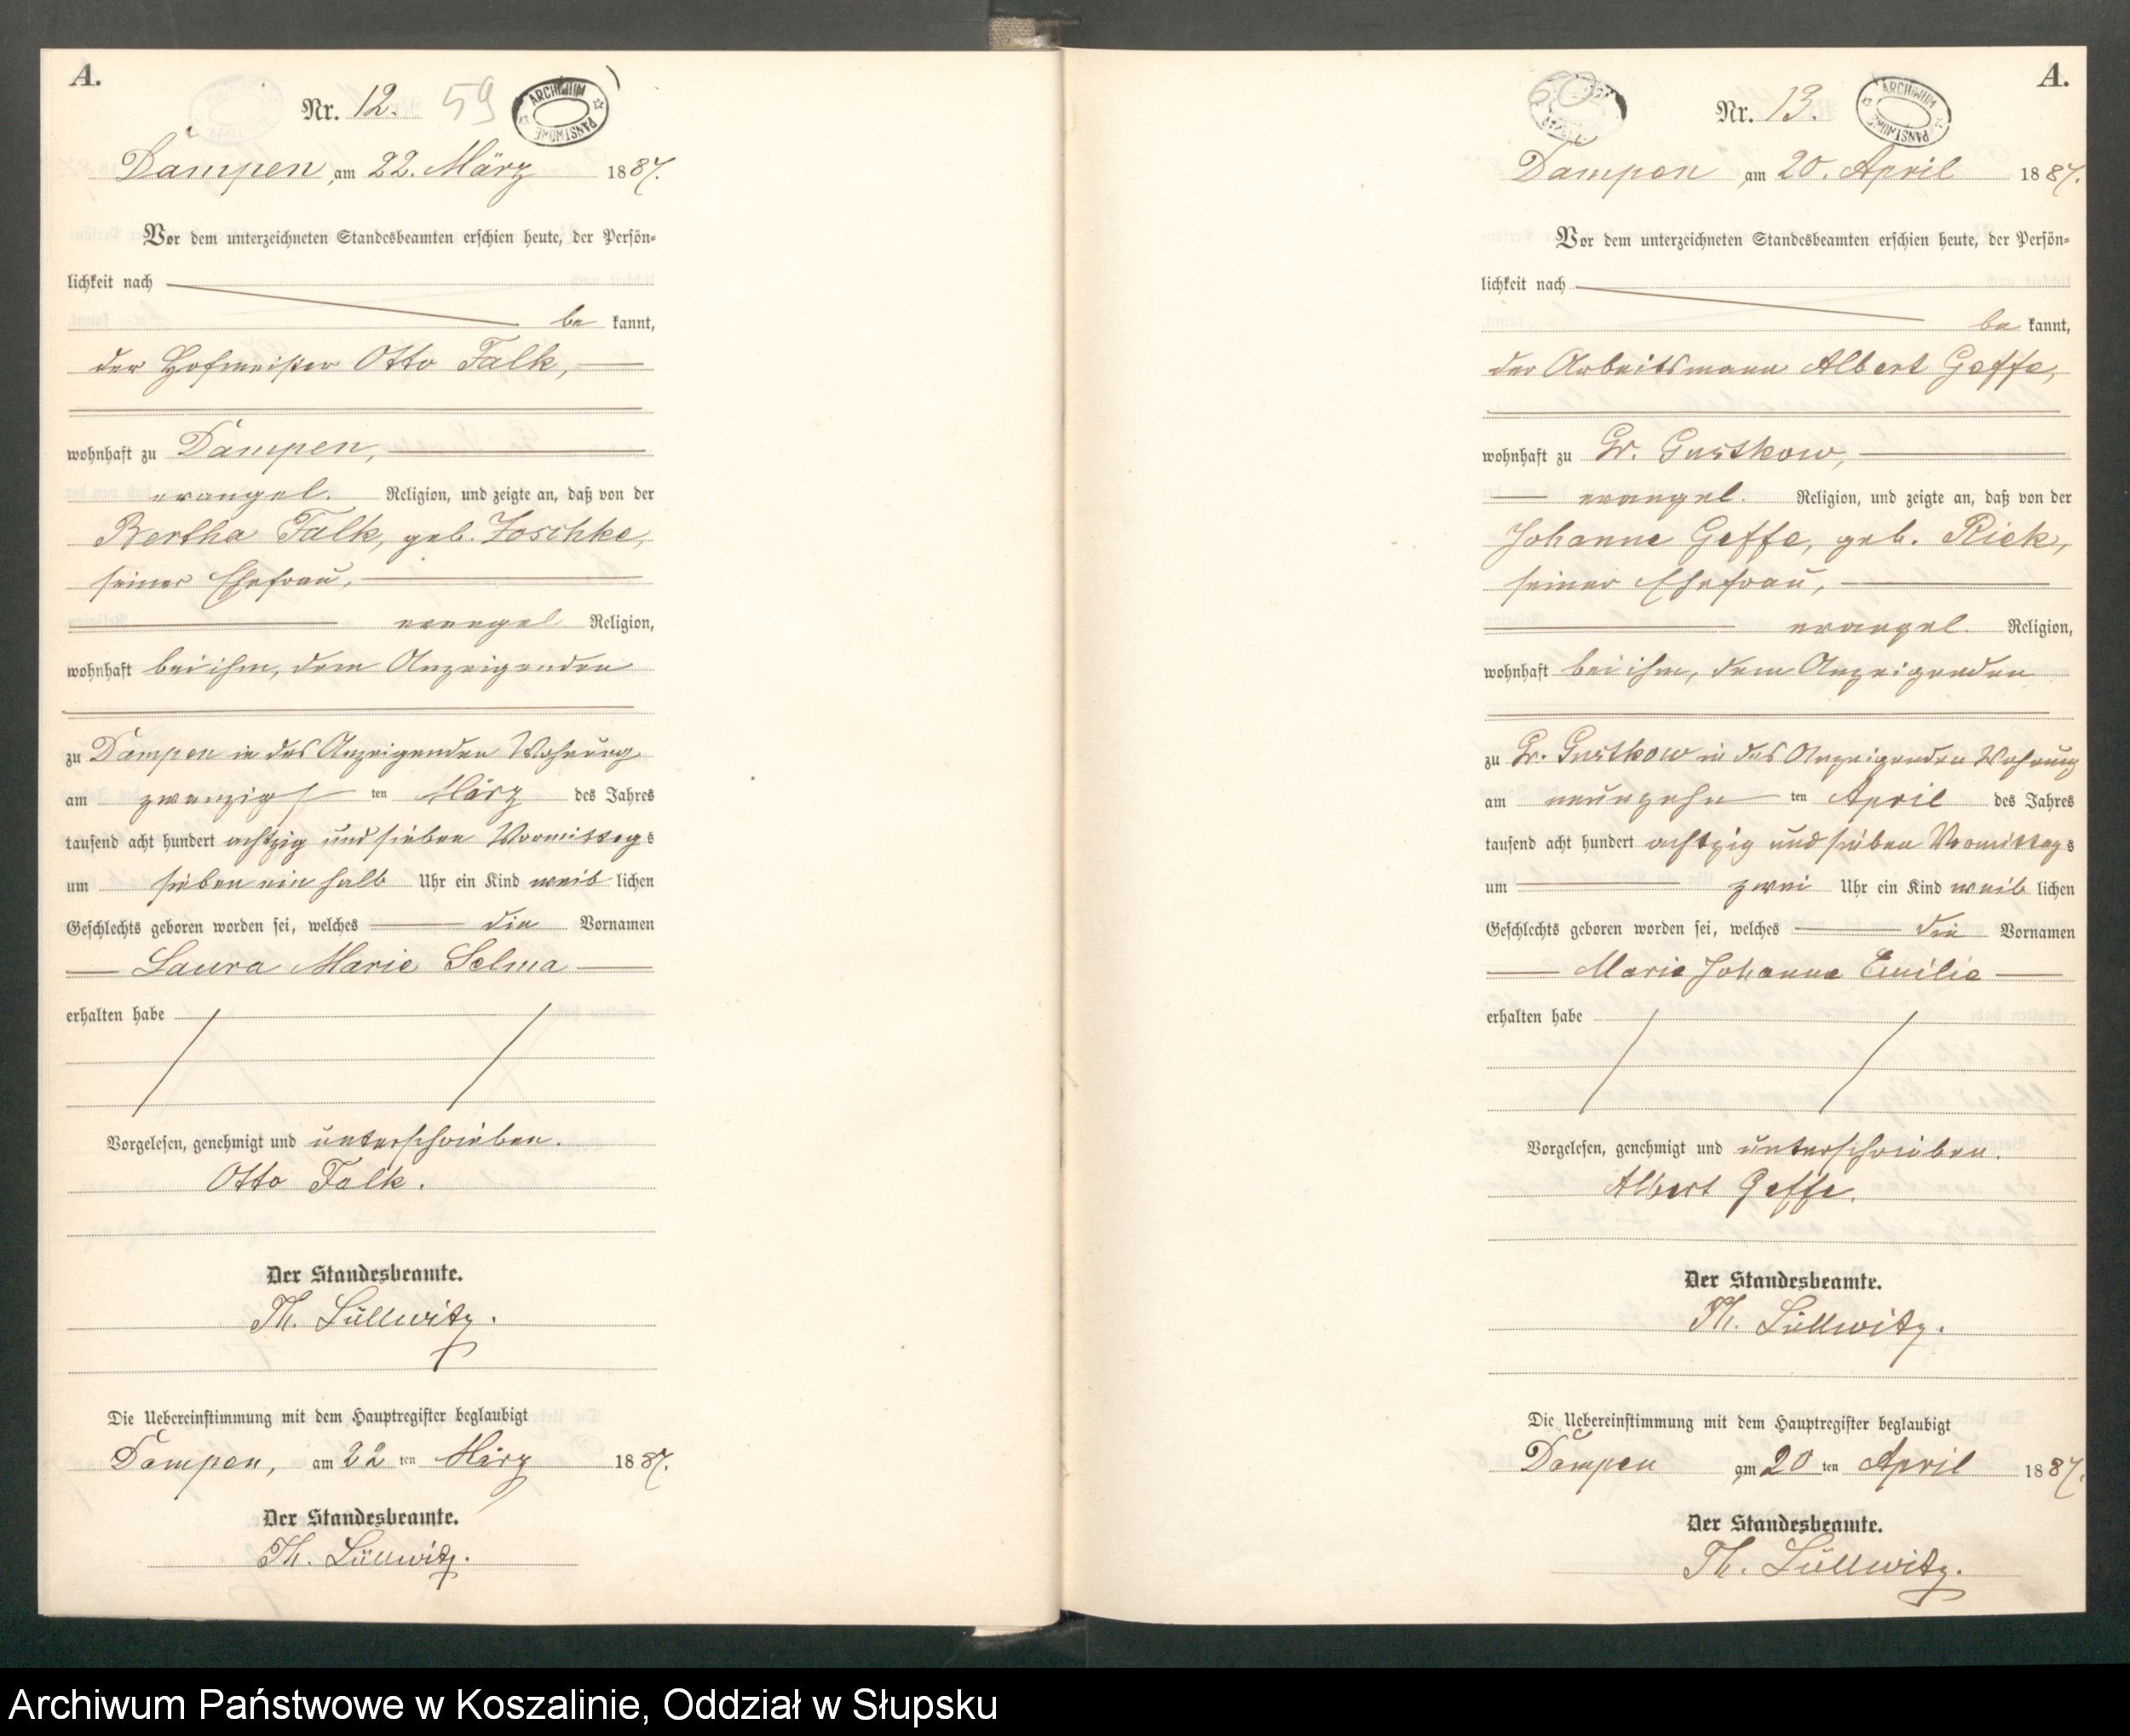 A.
Nr. 12. 59
ARCHIWUM PAŃSTWOWE
Dampen, am 22. März 1887.
Vor dem unterzeichneten Standesbeamten erschien heute, der Persön=
lichkeit nach
be kannt,
der Hofmeister Otto Falk,
wohnhaft zu Dampen,
evangel. Religion, und zeigte an, daß von der
Bertha Falk, geb. Zoschke,
seiner Ehefrau,
evangel. Religion,
wohnhaft bei ihm, dem Anzeigenden
zu Dampen in des Anzeigenden Wohnung
am zwanzigsten März des Jahres
tausend acht hundert achtzig und sieben Vormittags
um sieben ein halb Uhr ein Kind weiblichen
Geschlechts geboren worden sei, welches die Vornamen
Laura Marie Selma
erhalten habe
Vorgelesen, genehmigt und unterschrieben.
Otto Falk.
Der Standesbeamte.
Th. Lüllwitz.
Die Uebereinstimmung mit dem Hauptregister beglaubigt
Dampen, am 22 ten März 1887.
Der Standesbeamte.
Th. Lüllwitz.
A.
60 Nr. 13.
ARCHIWUM PAŃSTWOWE
Dampen am 20. April 1887.
Vor dem unterzeichneten Standesbeamten erschien heute, der Persön=
lichkeit nach
be kannt,
der Arbeitsmann Albert Geffe,
wohnhaft zu Gr. Gustkow,
evangel. Religion, und zeigte an, daß von der
Johanne Geffe, geb. Riek,
seiner Ehefrau,
evangel. Religion,
wohnhaft bei ihm, dem Anzeigenden
zu Gr. Gustkow in des Anzeigenden Wohnung
am neunzehn ten April des Jahres
tausend acht hundert achtzig und sieben Vormittags
um zwei Uhr ein Kind weiblichen
Geschlechts geboren worden sei, welches die Vornamen
Marie Johanne Emilie
erhalten habe
Vorgelesen, genehmigt und unterschrieben.
Albert Geffe.
Der Standesbeamte.
Th. Lüllwitz.
Die Uebereinstimmung mit dem Hauptregister beglaubigt
Dampen am 20 ten April 1887.
Der Standesbeamte.
Th. Lüllwitz.
Archiwum Państwowe w Koszalinie, Oddział w Słupsku